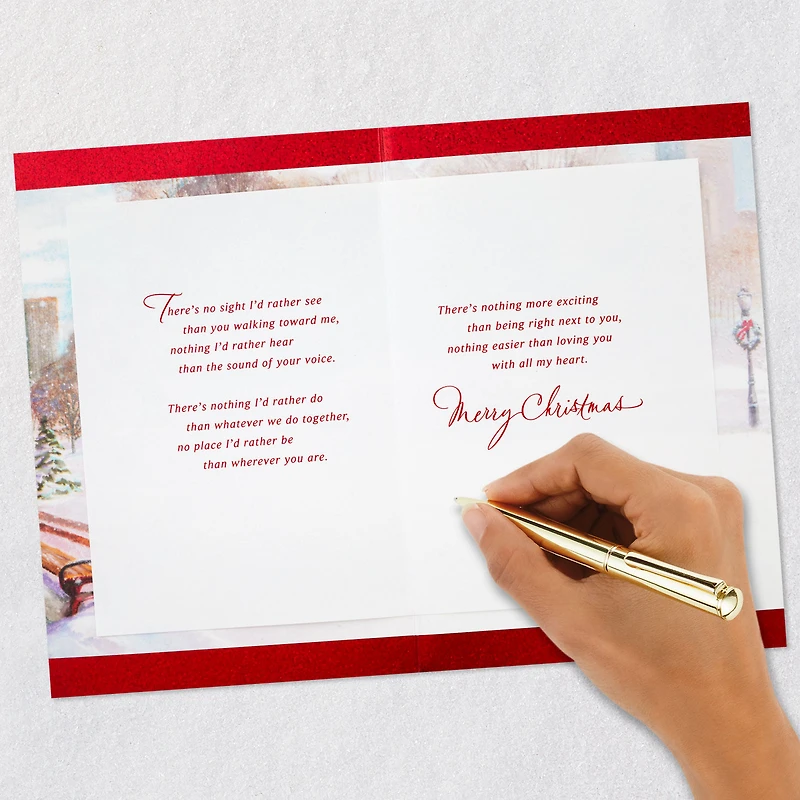 There's no sight I'd rather see
than you walking toward me,
nothing I'd rather hear
than the sound of your voice.
There's nothing I'd rather do
than whatever we do together,
no place I'd rather be
than wherever you are.
There's nothing more exciting
than being right next to you,
nothing easier than loving you
with all my heart.
Merry Christmas